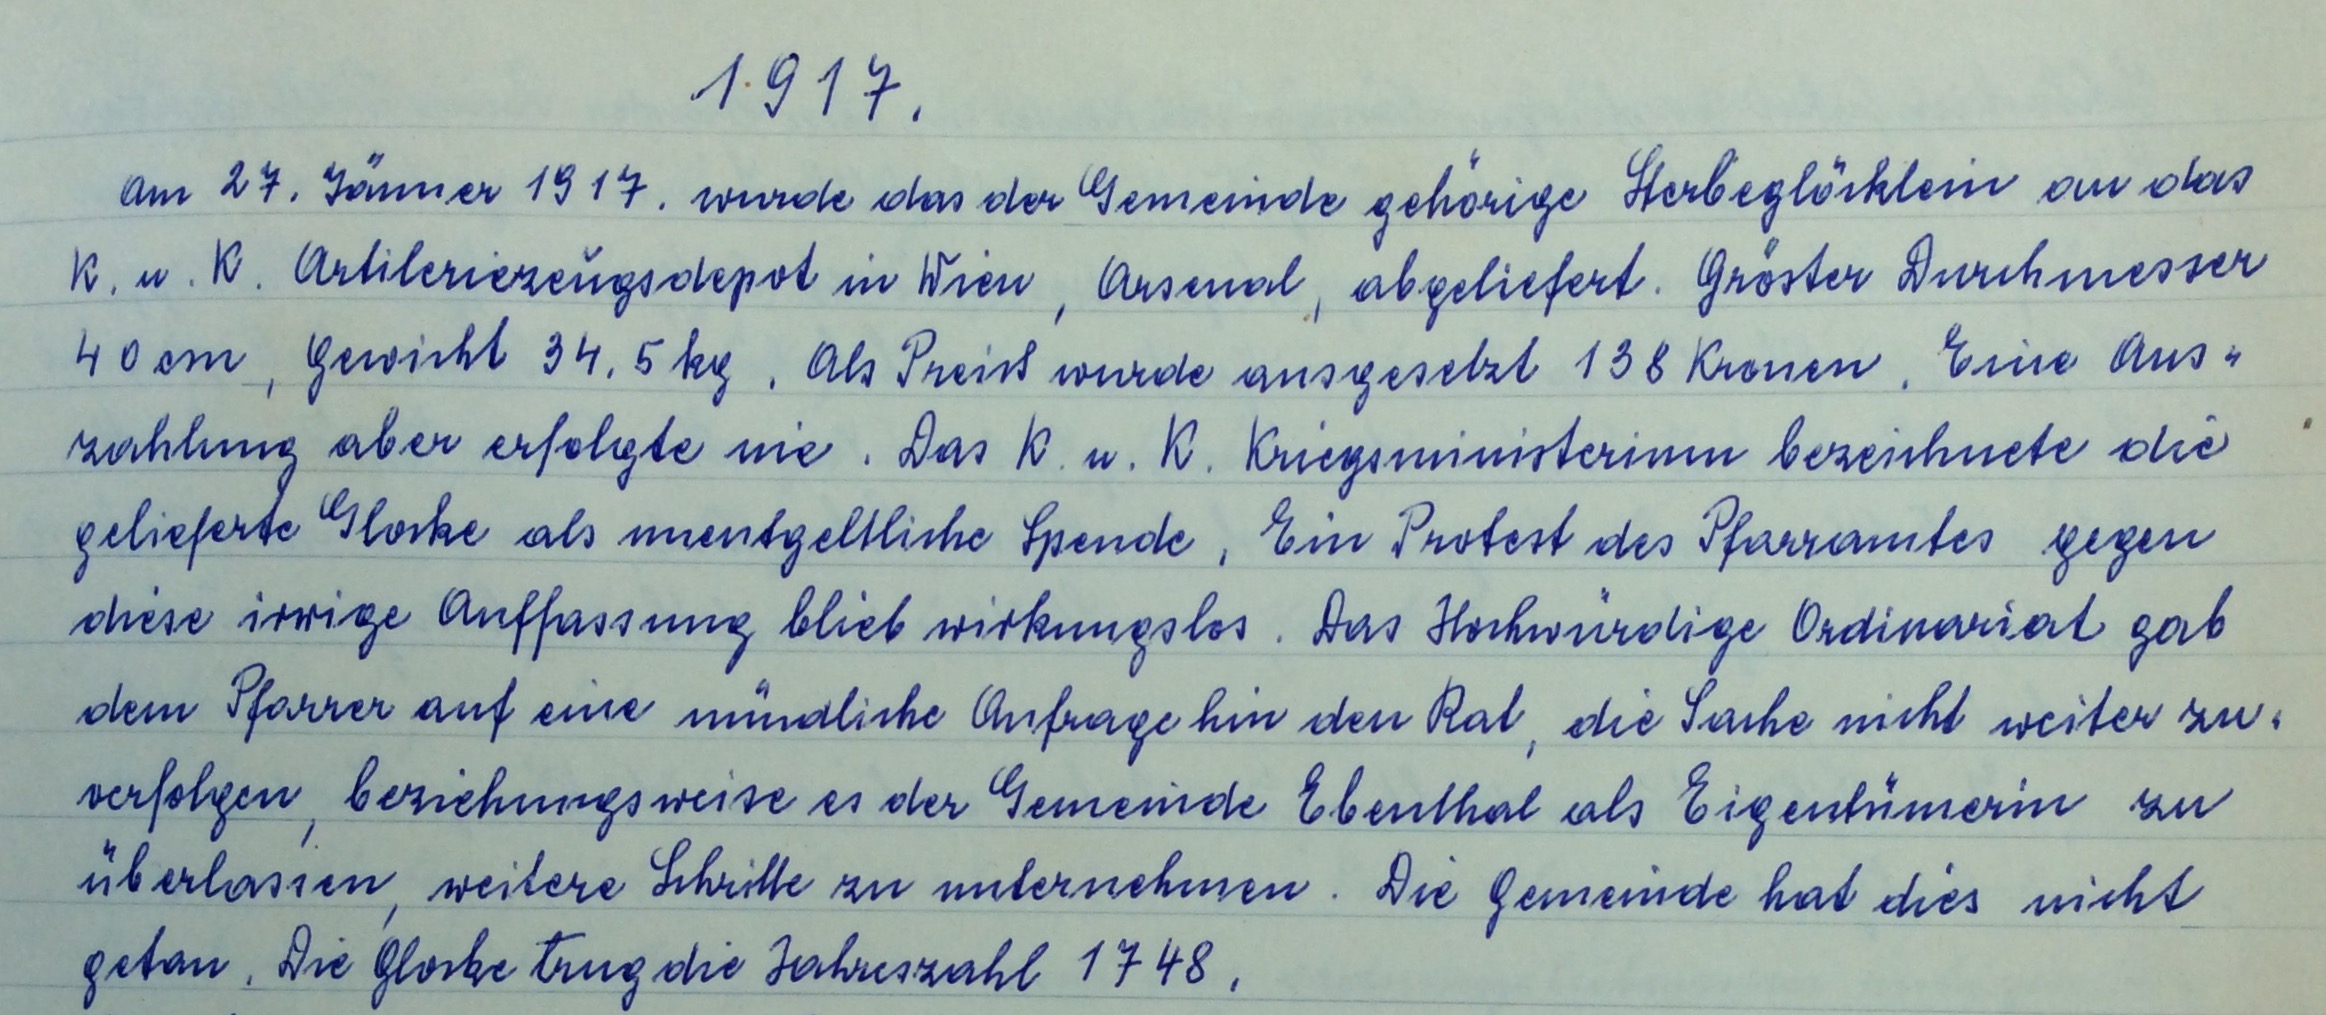 1917.
Am 27. Jänner 1917. wurde das der Gemeinde gehörige Sterbeglöcklein an das
K. u. K. Artileriezeugsdepot in Wien, Arsenal, abgeliefert. Gröster Durchmesser
40 cm, Gewicht 34.5 kg. Als Preis wurde ausgesetzt 138 Kronen. Eine Aus-
zahlung aber erfolgte nie. Das K. u. K. Kriegsministerium bezeichnete die
gelieferte Glocke als unentgeltliche Spende. Ein Protest des Pfarramtes gegen
diese irrige Auffassung blieb wirkungslos. Das Hochwürdige Ordinariat gab
dem Pfarrer auf eine mündliche Anfrage hin den Rat, die Sache nicht weiter zu-
verfolgen, beziehungsweise es der Gemeinde Ebenthal als Eigentümerin zu
überlassen, weitere Schritte zu unternehmen. Die Gemeinde hat dies nicht
getan. Die Glocke trug die Jahreszahl 1748.